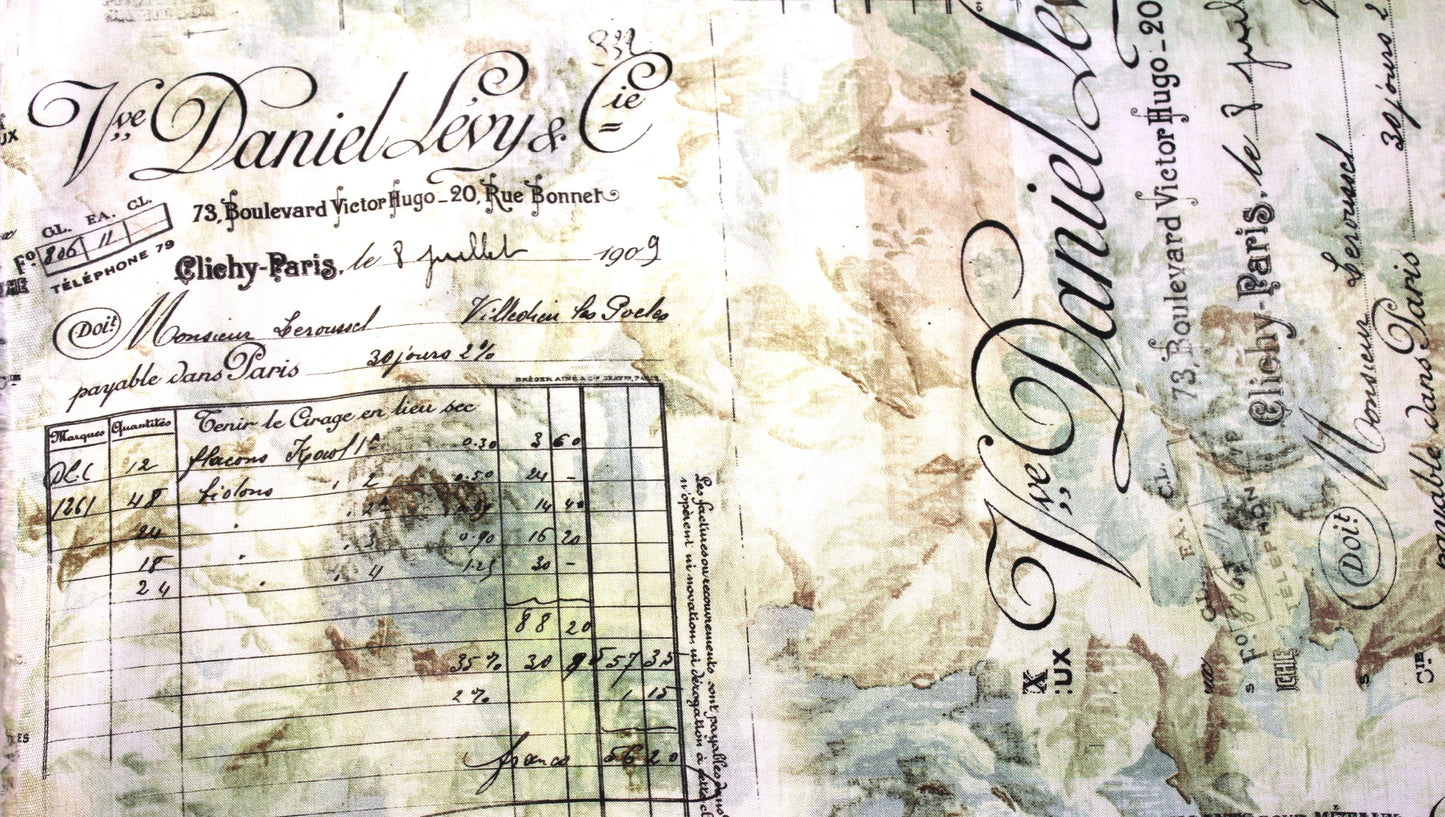 Vve Daniel Lévy & Cie
73, Boulevard Victor Hugo_20, Rue Bonnet
GL. EA. CL.
Fo 806 11
TÉLÉPHONE 79
Clichy-Paris, le 8 juillet 1909
Doit Monsieur Leroussel Villedieu les Poeles
payable dans Paris 30 jours 2%
BRÉGER AINÉ & Cie GRAV. PARIS
Marques Quantités Tenir le Cirage en lieu sec
12 flacons 0.30 3 60
1261 48 Bidons , 2 0.50 24 -
24 " , 14 40
18 " , 3 0.90 16 20
24 " , 4 1.25 30 -
88 20
35% 30 57 35
2% 1 15
franco 56 20
Les factures ou recouvrements sont payables dans
n'opèrent ni novation, ni dérogation à cette
Vve Daniel Lév
73, Boulevard Victor Hugo_20
Clichy-Paris, le 8 juil
GL. EA. CL.
Fo 806
TÉLÉPHONE
Doit Monsieur Leroussel
payable dans Paris 30 jours 2
UX
X
:UX
CHE
S
S
CIE
ES
POUR MÉTAUX